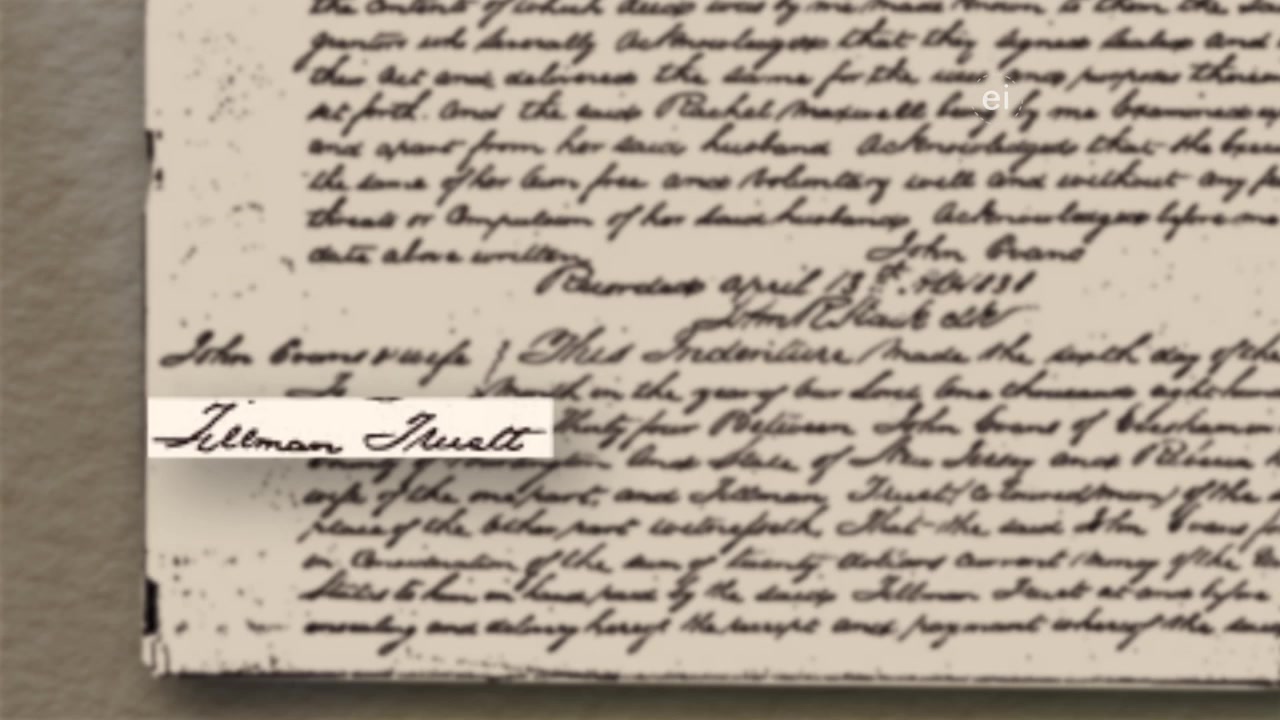 the contents of which deed was by me made known to them the said
grantors who severally Acknowledged that they signed sealed and
their Act and delivered the same for the uses and purposes therein
set forth. And the said Rachel Maxwell being by me Examined
and apart from her said husband Acknowledged that she
the same of her own free and Voluntary will and without any
threats or Compulsion of her said husband, Acknowledged before me
date above written
John Evans
Recorded April 13th. AD 1831
John R. Clk
John Evans & wife } This Indenture Made the sixth day of the
To Month in the year of our Lord One thousand eight
Tillman Truett
Thirty four Between John Evans of Evesham
and State of New Jersey and
wife of the one part. and Tillman Truett (Coloured man) of the
place of the Other part witnesseth, That the said John Evans
in Consideration of the sum of twenty dollars current Money of the
States to him in hand paid by the said Tillman Truett at and before
ensealing and delivery hereof the receipt and payment whereof the
ei